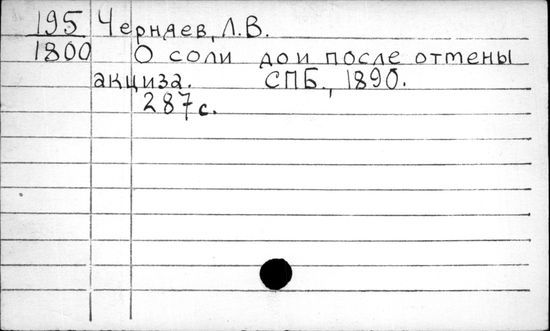 195 Черняев, Л.В.
1800 О соли до и после отмены
акциза. СПБ., 1890.
287 с.